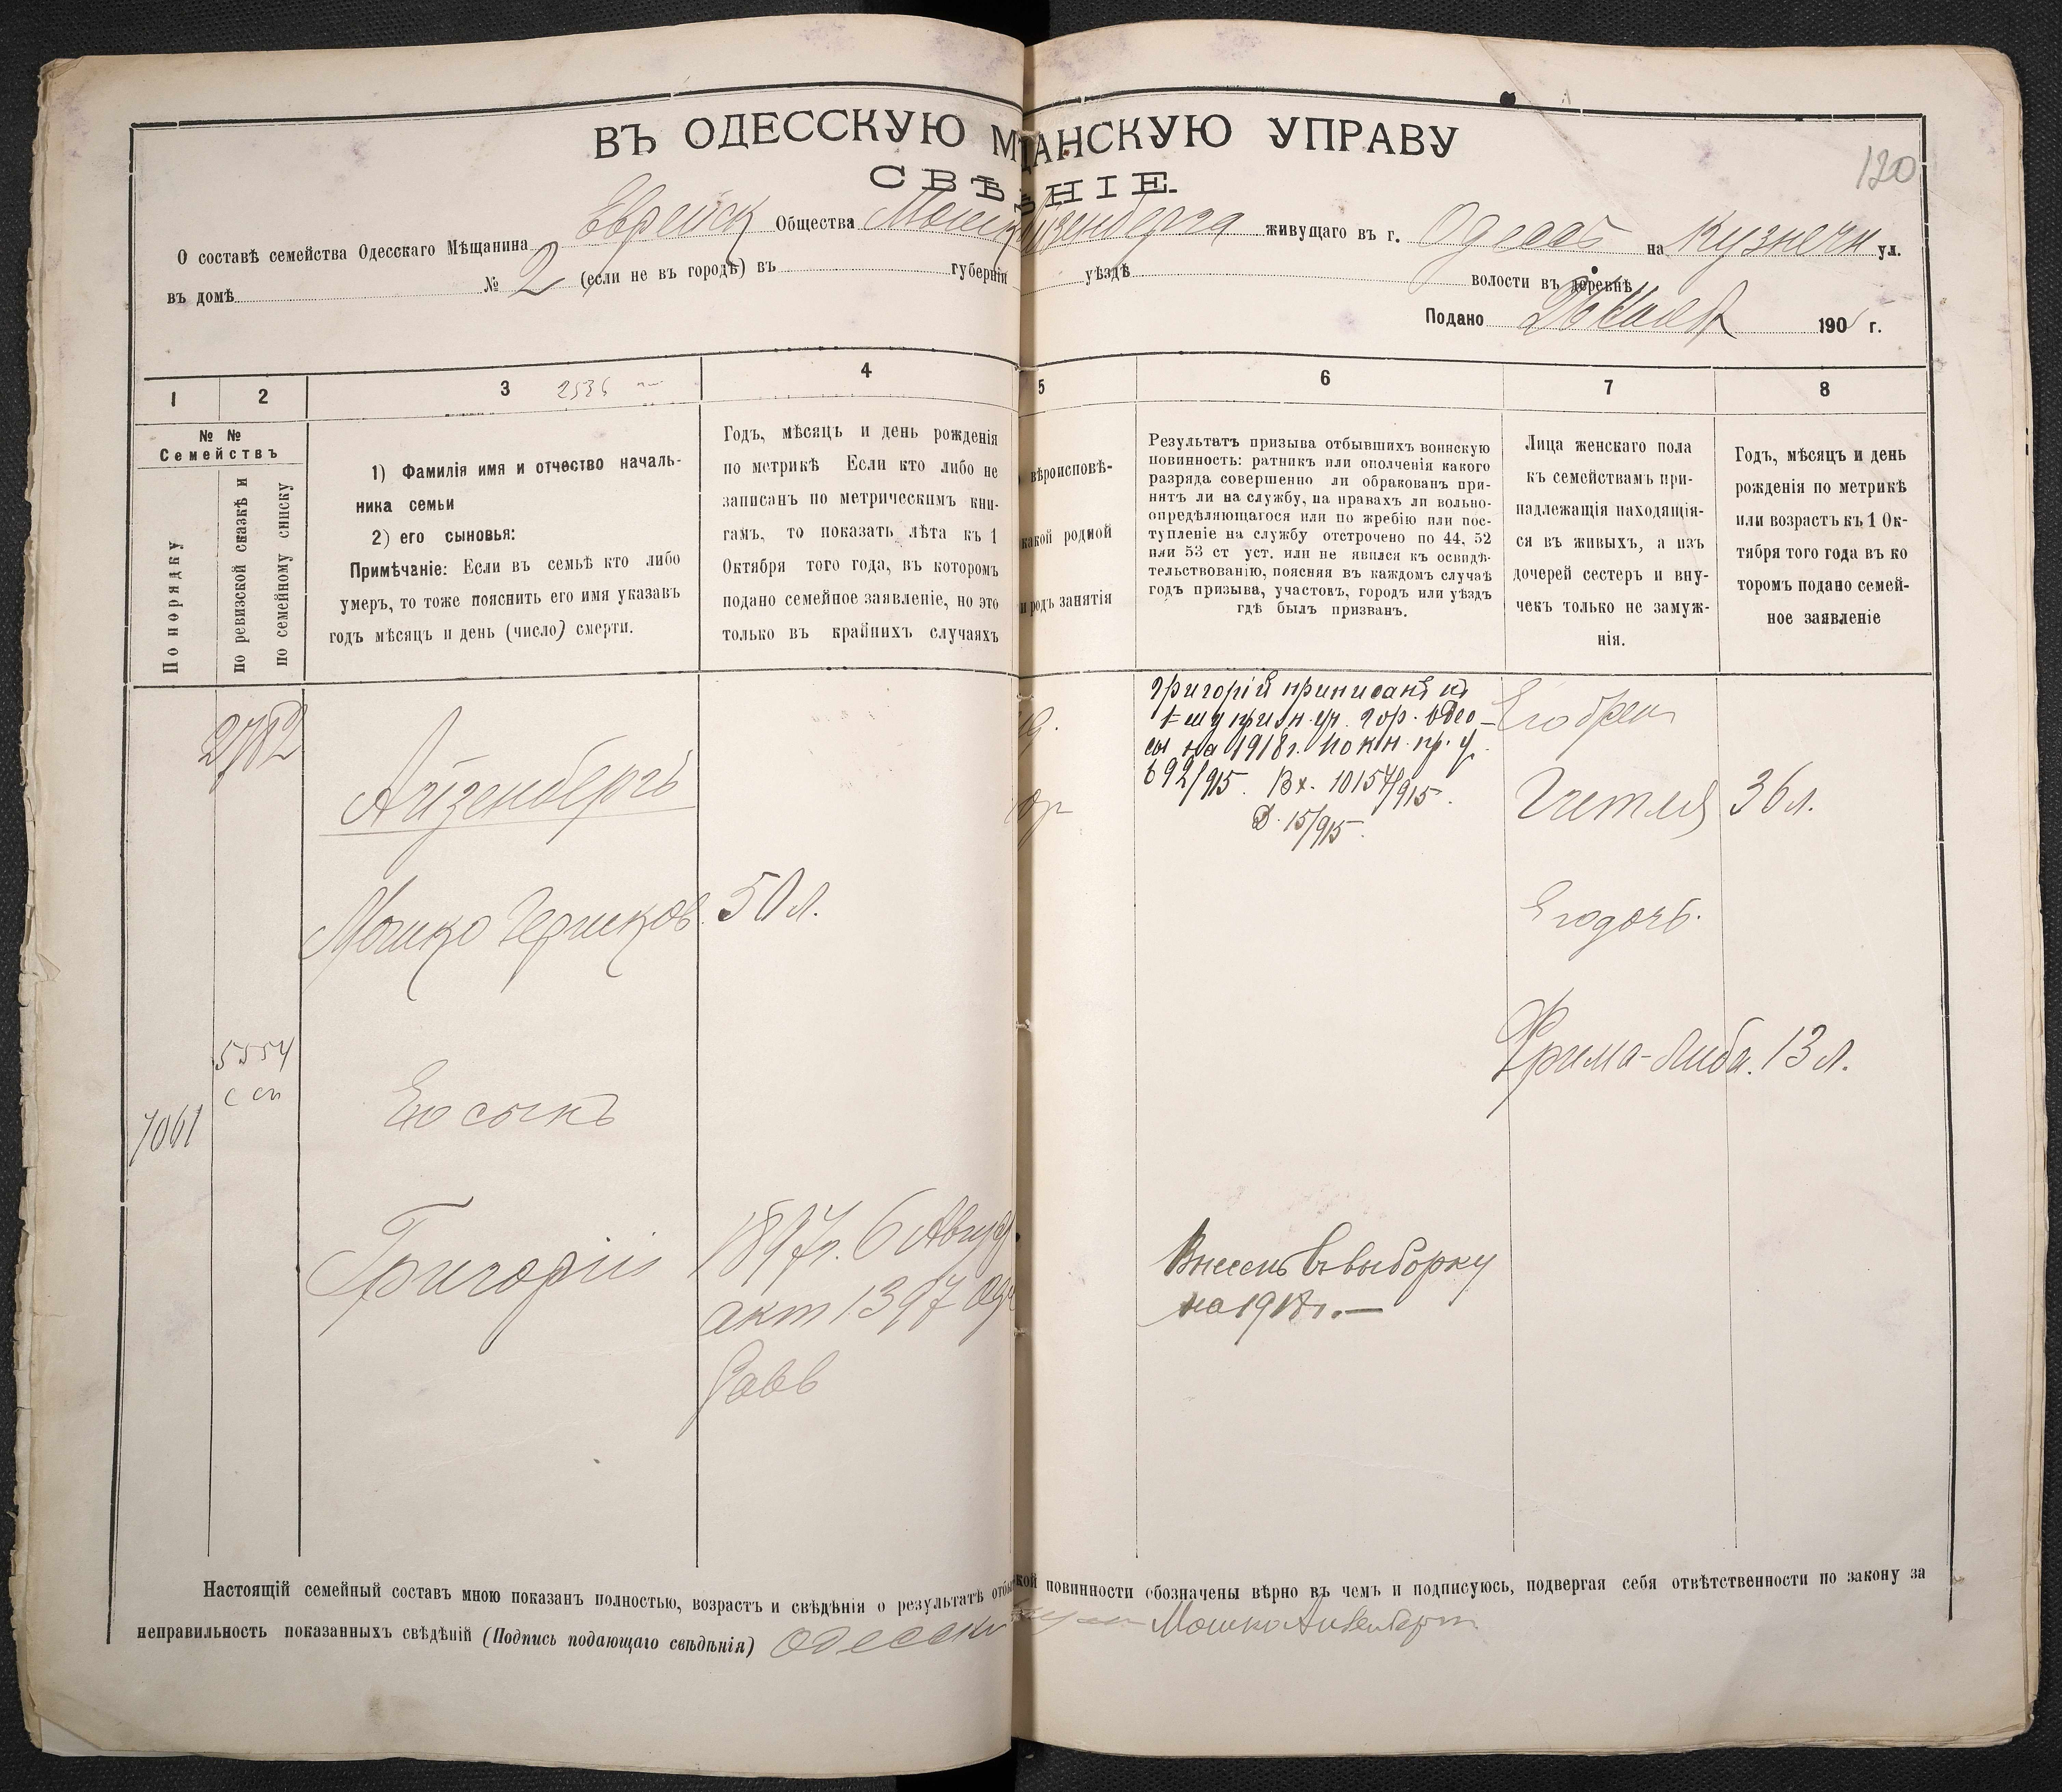 ВЪ ОДЕССКУЮ М ЩАНСКУЮ УПРАВУ
СВѢ НІЕ.
120
О составѣ семейства Одесскаго Мѣщанина Еврейск Общества Мошк Айзенберга живущаго въ г. Одессѣ на Кузнечн ул.
въ домѣ № 2 (если не въ городѣ) въ губерніи уѣздѣ волости въ деревнѣ
Подано 190 г.
1 2 3 2536 4 5 6 7 8
№ №
Семействъ
По порядку
По ревизской сказкѣ и
по семейному списку
1) Фамилія имя и отчество началь-
ника семьи
2) его сыновья:
Примѣчаніе: Если въ семьѣ кто либо
умеръ, то тоже пояснить его имя указавъ
годъ мѣсяцъ и день (число) смерти.
Годъ, мѣсяцъ и день рожденія
по метрикѣ Если кто либо не
записанъ по метрическимъ кни-
гамъ, то показать лѣта къ 1
Октября того года, въ которомъ
подано семейное заявленіе, но это
только въ крайнихъ случаяхъ
вѣроисповѣ-
какой родной
и родъ занятія
Результатъ призыва отбывшихъ воинскую
повинность: ратникъ или ополченія какого
разряда совершенно ли обракованъ при-
нятъ ли на службу, на правахъ ли вольно-
опредѣляющагося или по жребію или пос-
тупленіе на службу отстрочено по 44, 52
или 53 ст уст. или не явился къ освидѣ-
тельствованію, поясняя въ каждомъ случаѣ
годъ призыва, участокъ, городъ или уѣздъ
гдѣ былъ призванъ.
Лица женскаго пола
къ семействамъ при-
надлежащія находящія-
ся въ живыхъ, а изъ
дочерей сестеръ и вну-
чекъ только не замуж-
нія.
Годъ, мѣсяцъ и день
рожденія по метрикѣ
или возрастъ къ 1 Ок-
тября того года въ ко
торомъ подано семей-
ное заявленіе
2782
Айзенбергъ
Мошко Гершков. 50 л.
5554
с сп
7061
Его сынъ
Григорій
1897г. 6 Авгус
акт 1397 Оде
Равв
Григорій приписанъ къ
1-му приз. уч. гор. Одес-
сы на 1918г. по кн. пр. у.
692/915. Вх. 10154/915.
Д. 15/915.
Внесенъ въ выборку
на 1918г.—
Его
Гитля 36 л.
Его дочь.
Фрима-Либа. 13 л.
Настоящій семейный составъ мною показанъ полностью, возрастъ и свѣдѣнія о результатѣ отбы кой повинности обозначены вѣрно въ чемъ и подписуюсь, подвергая себя отвѣтственности по закону за
неправильность показанныхъ свѣдѣній (Подпись подающаго свѣдѣнія) Одесскій Мошко Айзенберг